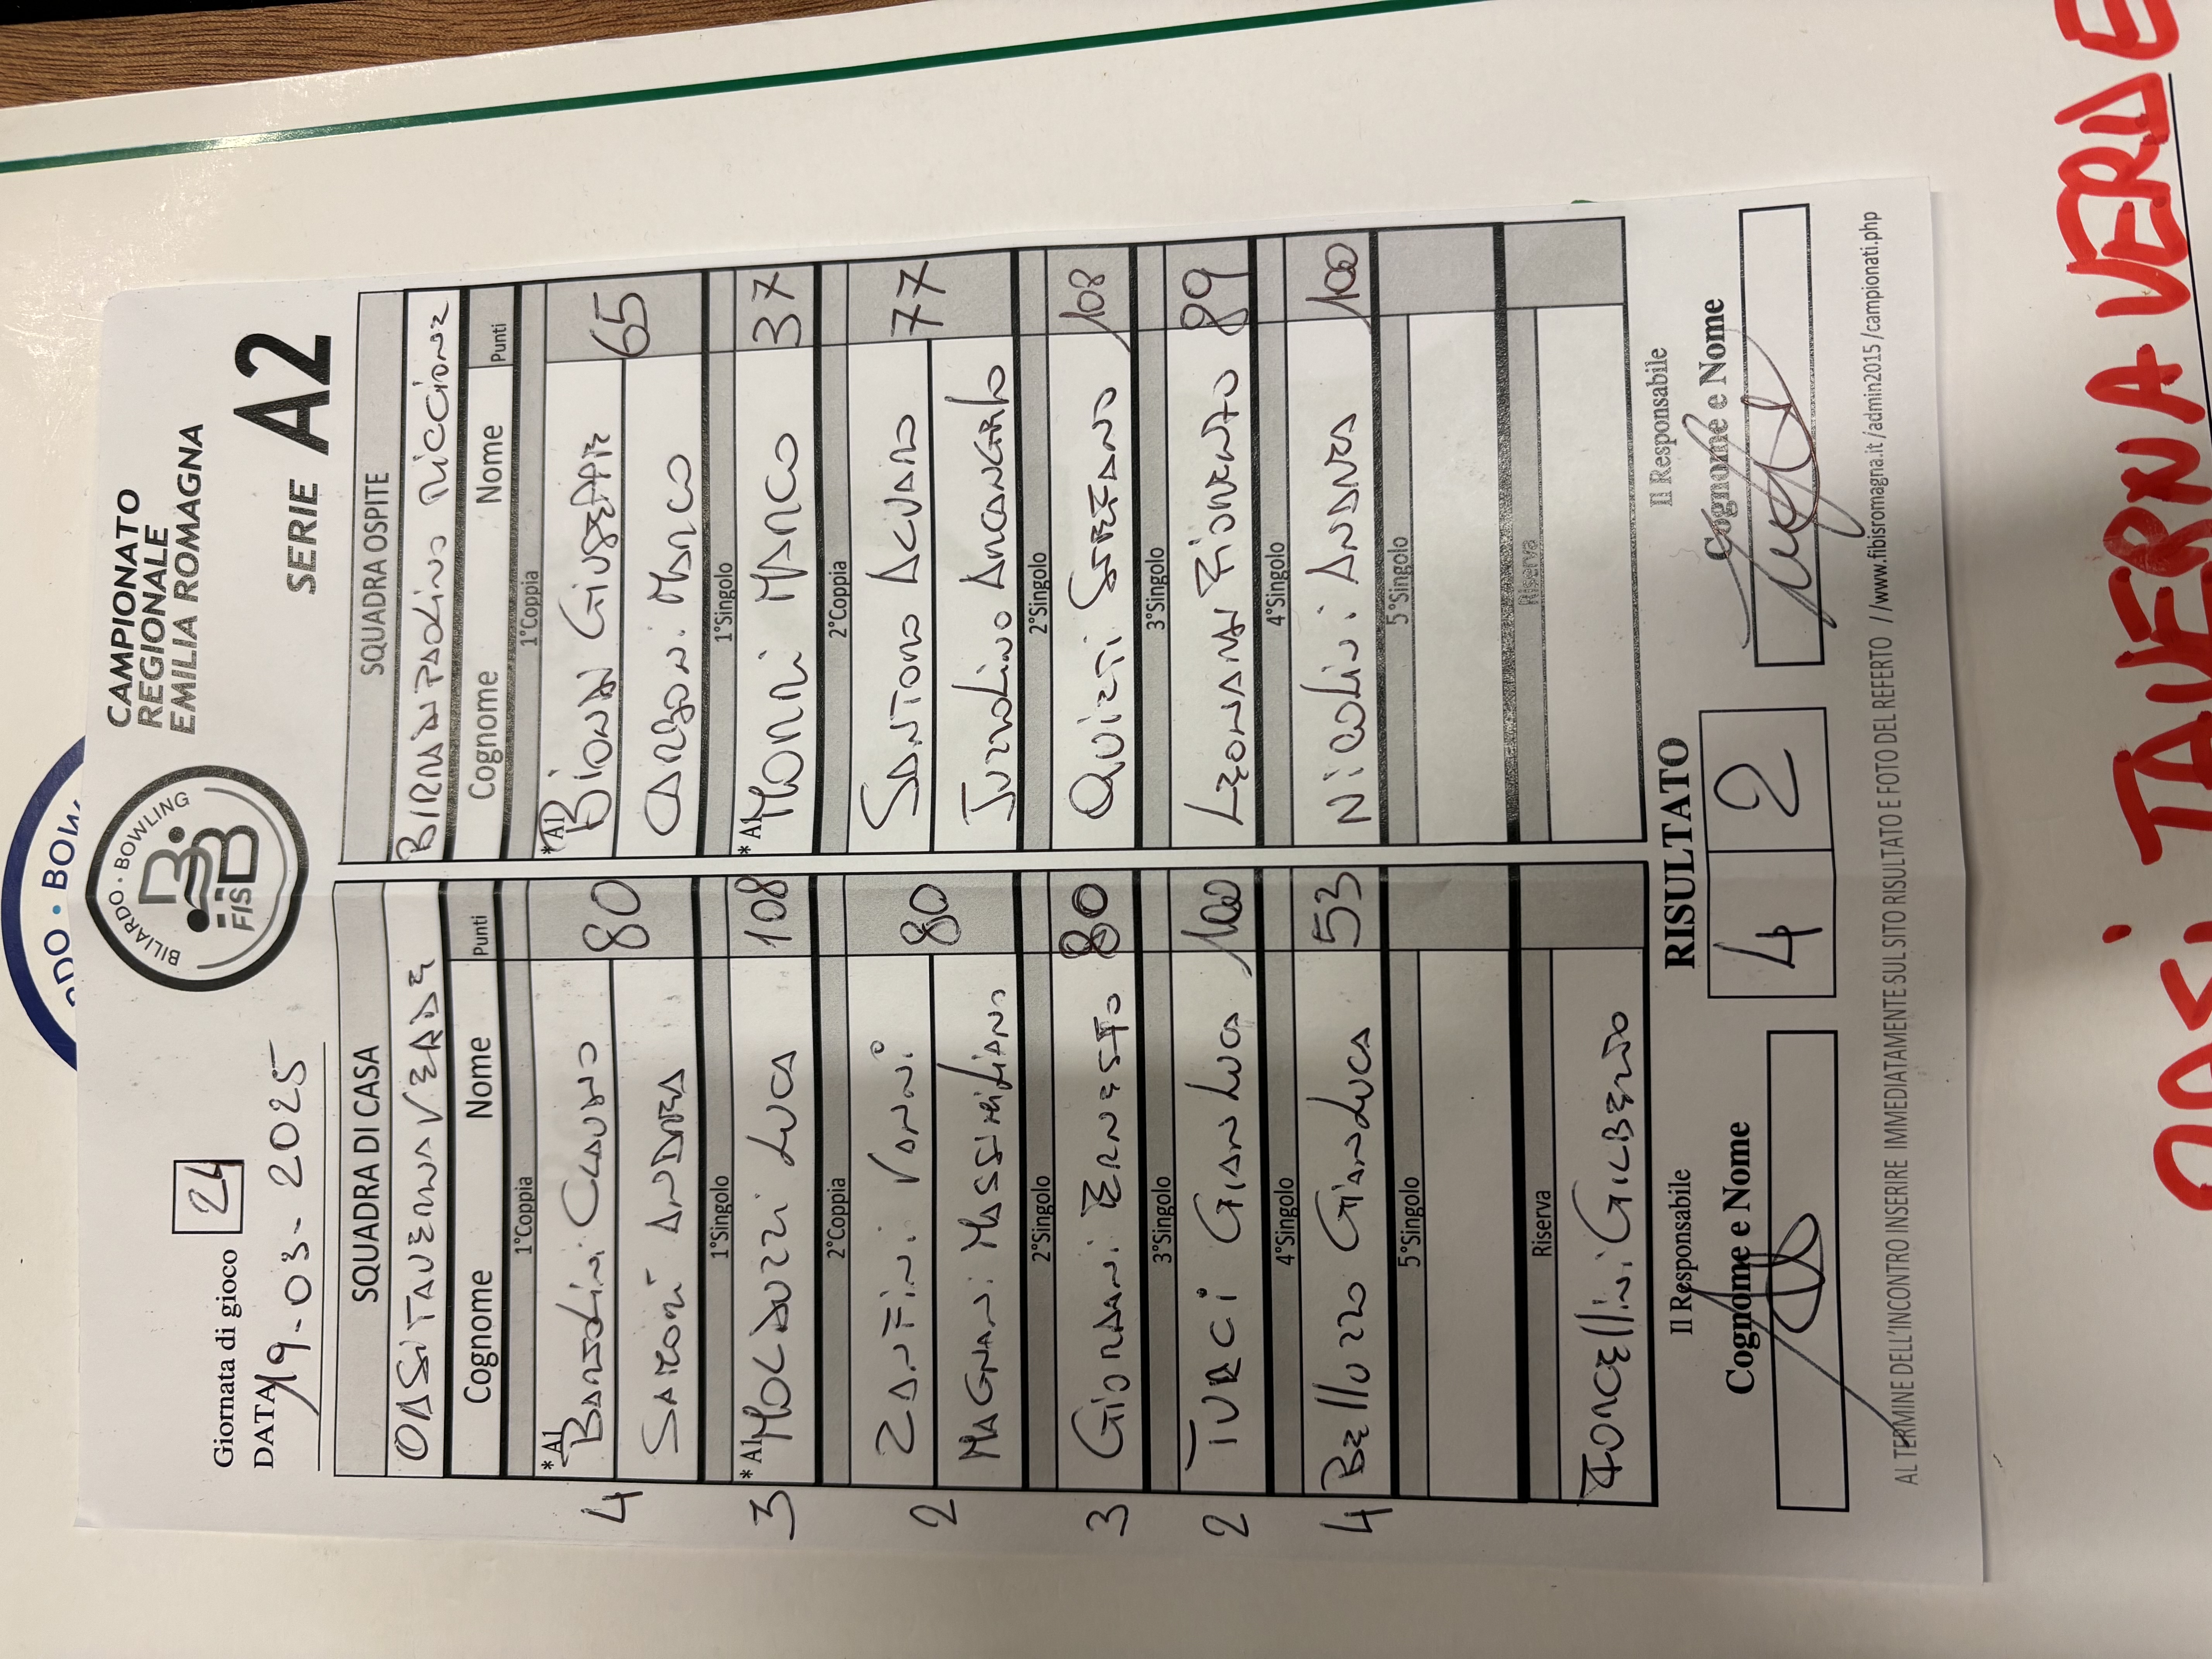 BILIARDO · BOWLING
FISBB
CAMPIONATO
REGIONALE
EMILIA ROMAGNA
Giornata di gioco 24
DATA 19-03-2025
SERIE A2
SQUADRA DI CASA
OASI TAVERNA VERDE
Cognome Nome Punti
1°Coppia
*A1 Barzolini Claudio 80
4
Samorì Andrea
1°Singolo
3 *A1 Molduzzi Luca 108
2°Coppia
Zanfini Vanni 80
2
Magnani Massimiliano
2°Singolo
3 Giordani Ernesto 80
3°Singolo
2 Turci Gianluca 100
4°Singolo
4 Belluzzo Gianluca 53
5°Singolo
Riserva
Forcellini Gilberto
SQUADRA OSPITE
BIRRA DI PAOLINO RICCIONE
Cognome Nome Punti
1°Coppia
*A1 Biondi Giuseppe 65
Carboni Marco
1°Singolo
*A1 Morri Marco 37
2°Coppia
Santoro Alvaro 77
Iuzzolino Arcangelo
2°Singolo
Quieti Stefano 108
3°Singolo
Leonardi Fiorenzo 89
4°Singolo
Nicolini Andrea 100
5°Singolo
Riserva
Il Responsabile
Cognome e Nome
RISULTATO
4 2
Il Responsabile
Cognome e Nome
AL TERMINE DELL'INCONTRO INSERIRE IMMEDIATAMENTE SUL SITO RISULTATO E FOTO DEL REFERTO //www.fibisromagna.it/admin2015/campionati.php
OASI TAVERNA VERDE